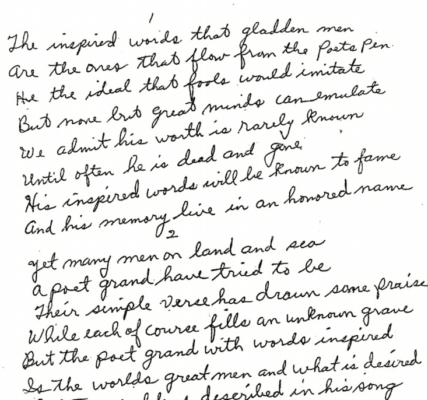 1
The inspired words that gladden men
Are the ones that flow from the Poets Pen.
He the ideal that fools would imitate
But none but great minds can emulate
We admit his worth is rarely known
Until often he is dead and gone
His inspired words will be known to fame
And his memory live in an honored name
2
Yet many men on land and sea
a poet grand have tried to be
Their simple verse has drawn some praise
While each of course fills an unknown grave
But the poet grand with words inspired
Is the worlds great men and what is desired
described in his song